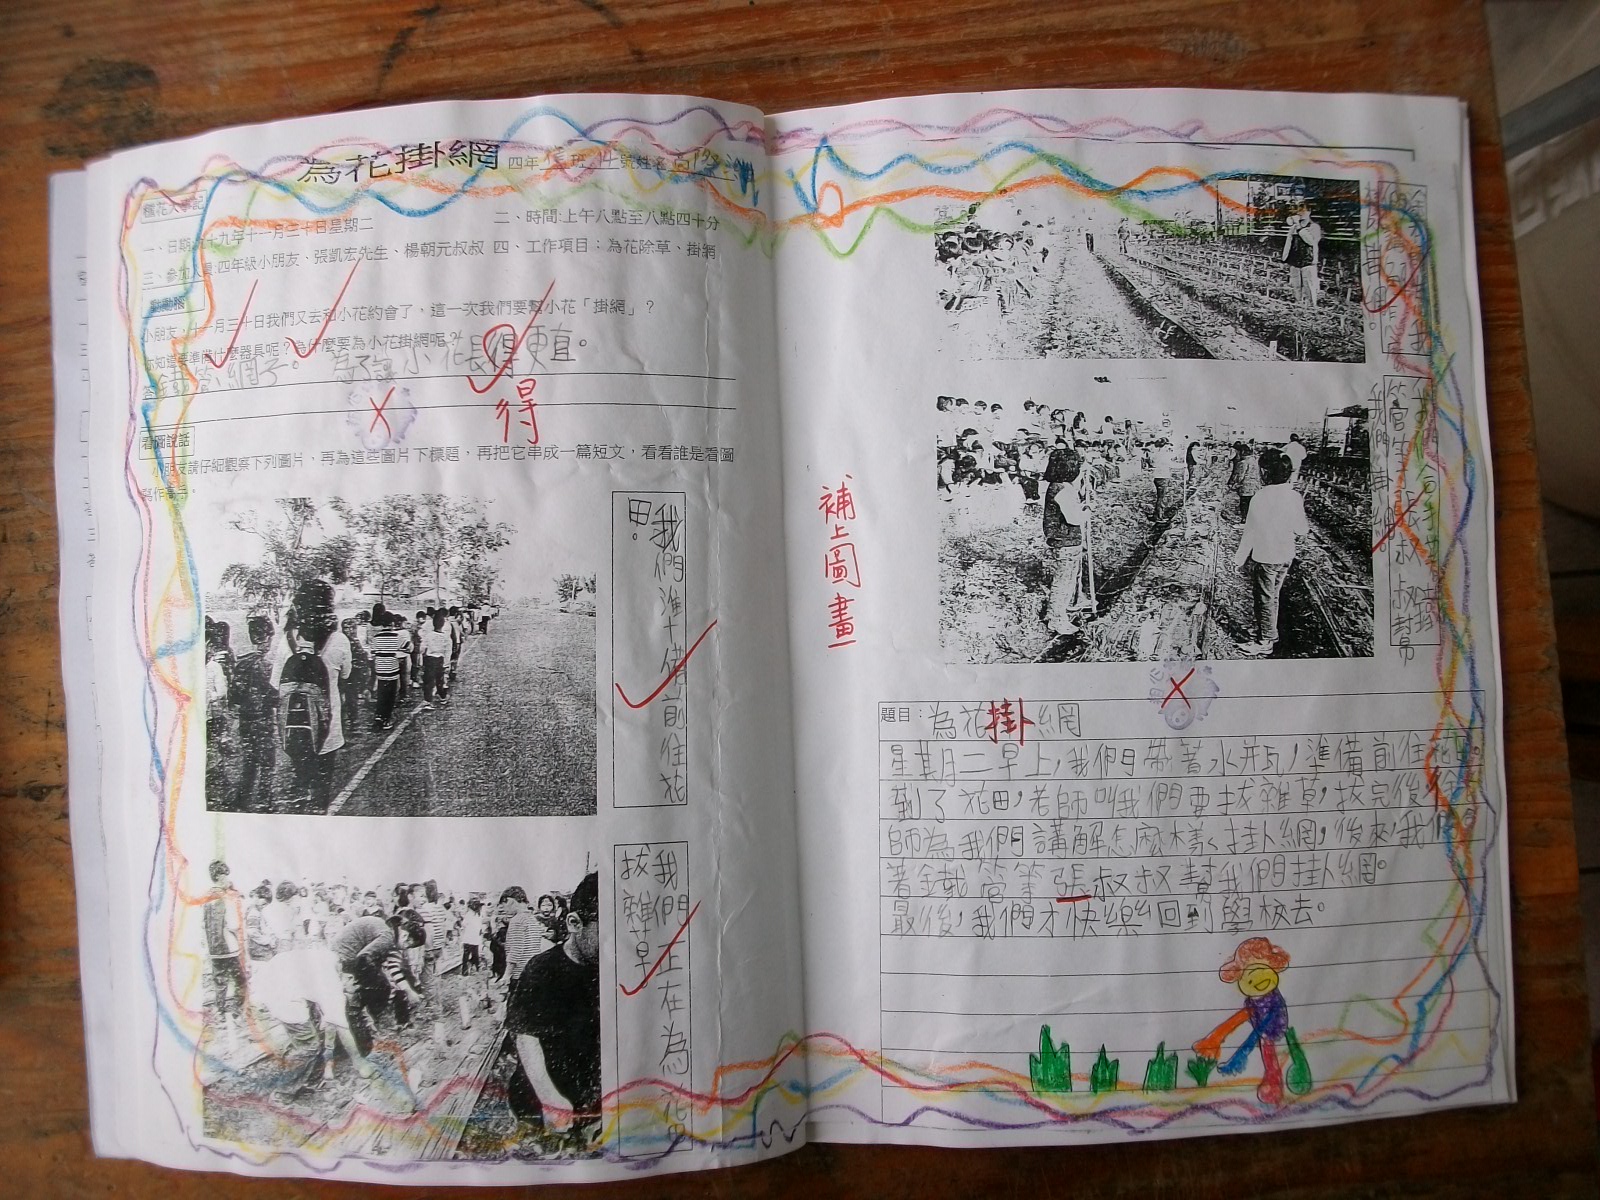 為花掛網 四年 班 號姓名
種花大事記
一、日期:九十九年十一月三十日星期二 二、時間:上午八點至八點四十分
三、參加人員:四年級小朋友、張凱宏先生、楊朝元叔叔 四、工作項目：為花除草、掛網
動動腦
小朋友，十一月三十日我們又去和小花約會了，這一次我們要幫小花「掛網」？
你知道要準備什麼器具呢？為什麼要為小花掛網呢？
答:鐵管、網子。為了讓小花長得更直。
得
看圖說話
小朋友請仔細觀察下列圖片、再為這些圖片下標題，再把它串成一篇短文，看看誰是看圖
寫作高手。
我們準備前往花
田。
我們正在為花田
拔雜草
補上圖畫
我們合手拿鐵
管等張叔叔幫
我們掛網。
題目：為花掛網
星期二早上，我們帶著水瓶，準備前往花田。
到了花田，老師叫我們要拔雜草，拔完後，
師為我們講解怎麼樣掛網，後來，我們
著鐵管等張叔叔幫我們掛網。
最後，我們才快樂回到學校去。